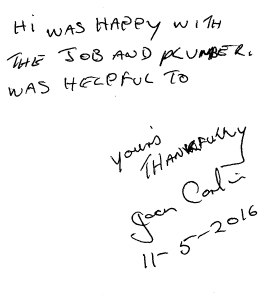 Hi WAS HAPPY WITH
THE JOB AND PLUMBER.
WAS HELPFUL TO
yours
THANKFULLY
Jean
11-5-2016